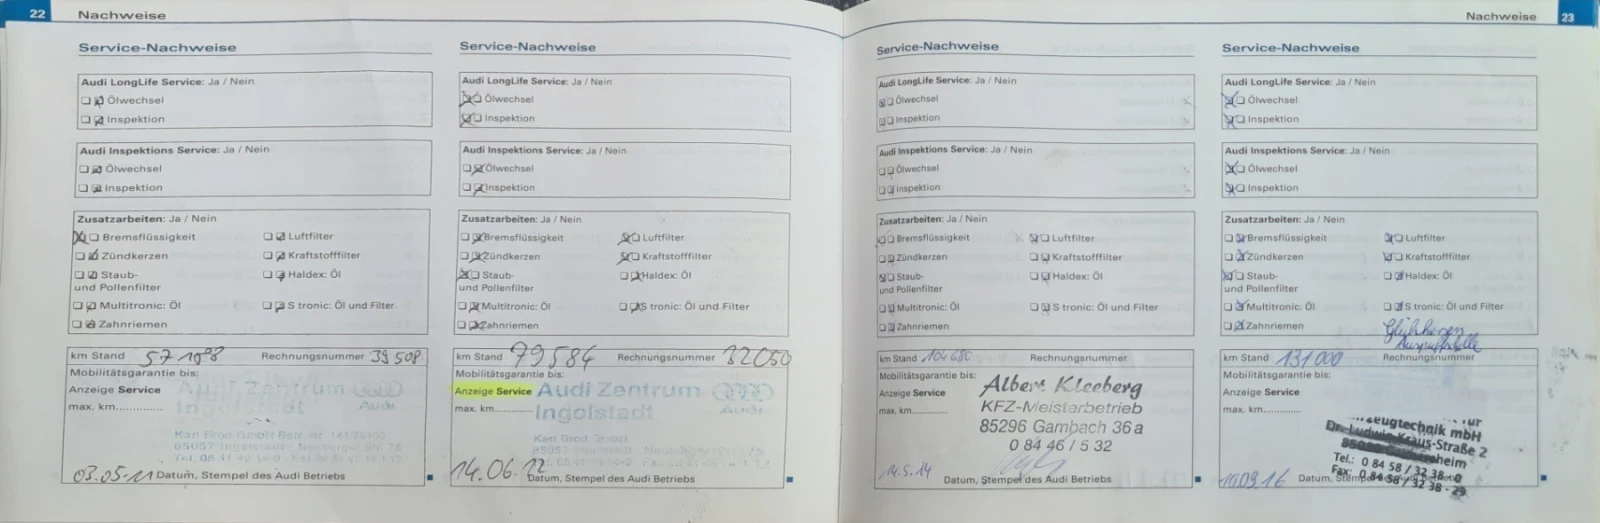 22 Nachweise
Service-Nachweise
Audi LongLife Service: Ja / Nein
Ölwechsel
Inspektion
Audi Inspektions Service: Ja / Nein
Ölwechsel
Inspektion
Zusatzarbeiten: Ja / Nein
Bremsflüssigkeit Luftfilter
Zündkerzen Kraftstofffilter
Staub- Haldex: Öl
und Pollenfilter
Multitronic: Öl S tronic: Öl und Filter
Zahnriemen
km Stand Rechnungsnummer 39508
Mobilitätsgarantie bis:
Anzeige Service Audi Zentrum
max. km............. Ingolstadt
Audi
03.05.11 Datum, Stempel des Audi Betriebs
Service-Nachweise
Audi LongLife Service: Ja / Nein
Ölwechsel
Inspektion
Audi Inspektions Service: Ja / Nein
Ölwechsel
Inspektion
Zusatzarbeiten: Ja / Nein
Bremsflüssigkeit Luftfilter
Zündkerzen Kraftstofffilter
Staub- Haldex: Öl
und Pollenfilter
Multitronic: Öl S tronic: Öl und Filter
Zahnriemen
km Stand 79584 Rechnungsnummer
Mobilitätsgarantie bis:
Anzeige Service Audi Zentrum
max. km............. Ingolstadt
Audi
14.06.12 Datum, Stempel des Audi Betriebs
Nachweise 23
Service-Nachweise
Audi LongLife Service: Ja / Nein
Ölwechsel
Inspektion
Audi Inspektions Service: Ja / Nein
Ölwechsel
Inspektion
Zusatzarbeiten: Ja / Nein
Bremsflüssigkeit Luftfilter
Zündkerzen Kraftstofffilter
Staub- Haldex: Öl
und Pollenfilter
Multitronic: Öl S tronic: Öl und Filter
Zahnriemen
km Stand 104680 Rechnungsnummer
Mobilitätsgarantie bis:
Anzeige Service Albert Kleeberg
max. km............. KFZ-Meisterbetrieb
85296 Gambach 36a
0 84 46 / 5 32
14.5.14 Datum, Stempel des Audi Betriebs
Service-Nachweise
Audi LongLife Service: Ja / Nein
Ölwechsel
Inspektion
Audi Inspektions Service: Ja / Nein
Ölwechsel
Inspektion
Zusatzarbeiten: Ja / Nein
Bremsflüssigkeit Luftfilter
Zündkerzen Kraftstofffilter
Staub- Haldex: Öl
und Pollenfilter
Multitronic: Öl S tronic: Öl und Filter
Zahnriemen
km Stand 131000 Rechnungsnummer
Mobilitätsgarantie bis:
Anzeige Service
max. km.............
mbH
Dr.-Ludwig-Kraus-Straße 2
Tel.: 0 84 58 / 32 38 - 0
Fax: 0 84 58 / 32 38 - 29
Datum, Stempel des Audi Betriebs